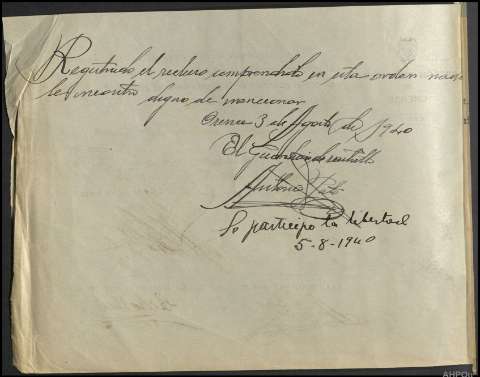 Registrado el recluso comprendido en esta orden nada
le encontró digno de mencionar
Orense 3 de Agosto de 1940
El Guardian de
Antonio
Se participo la libertad
5-8-1940
AHPOu